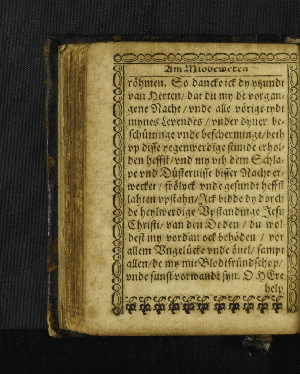 Am Midweken
röhmen. So dancke ick dy ytzundt
van Herten/ dat du my de vorgan-
gene Nacht/ vnde alle vörige tydt
mynes Levendes/ vnder dyner be-
schüttinge vnde bescherminge/ beth
vp disse yegenwerdige stunde erhol-
den heffst/ vnd my vth dem Schla-
pe vnd Düsternisse disser Nacht er-
wecket/ frölyck vnde gesundt heffst
lahten vpstahn/ Ick bidde dy dorch
de heylwerdige Vpstandinge Jesu
Christi/ van den Doden/ du wol-
dest my vordan ock behöden/ vor
allem Vngelücke vnde övel/ sampt
allen/ de my mit Blodtfründschop/
vnde sunst vorwandt syn. O HEre
help